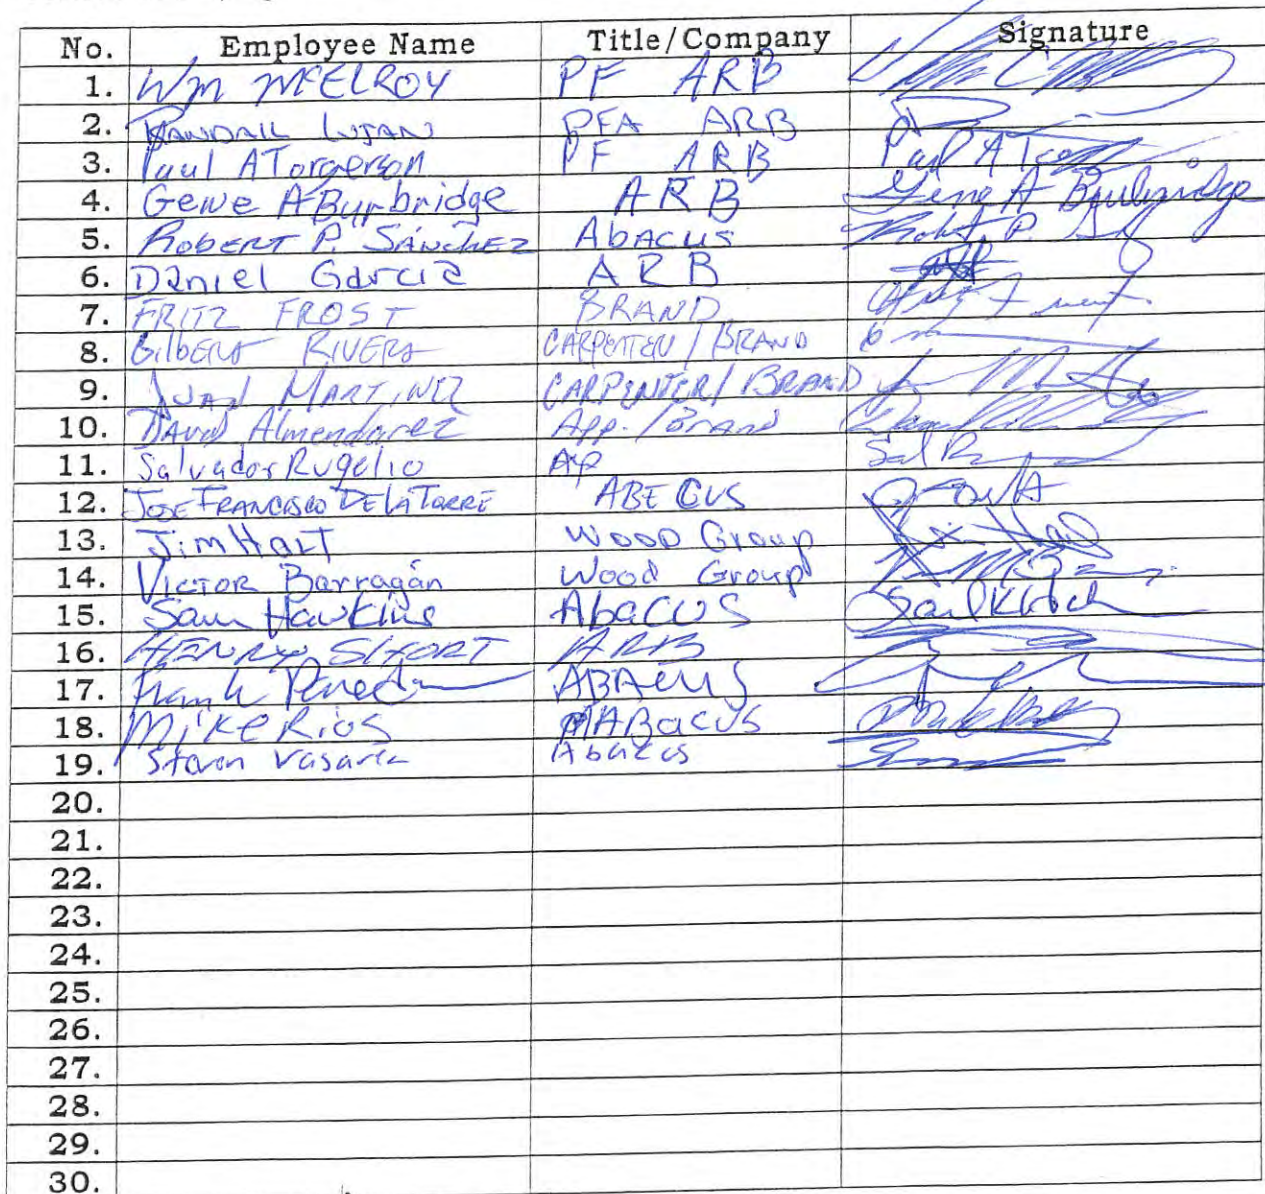 No. Employee Name Title/Company Signature
1. Wm McELROY PF ARB
2. RANDAIL LUJAN PFA ARB
3. Paul A Torgerson PF ARB Paul A
4. Gene A Burbridge ARB Gene A Burbridge
5. ROBERT P. SÁNCHEZ AbACUS Robt P.
6. Daniel Garcia ARB
7. FRITZ FROST BRAND
8. GilbERt RIVERA CARPENTER / BRAND
9. JUAN MARTINEZ CARPENTER / BRAND
10. David Almendarez App. / Brand
11. Salvador Rugelio AP Sal
12. JOSE FRANCISCO DE LA TORRE ABECUS
13. Jim HarT WOOD Group Jim
14. VICTOR Barragán Wood Group
15. Sam Hawkins AbaCUS
16. HENRY SHORT ARB
17. Frank ABACUS
18. MiKE RiOS Abacus
19. Steven Abacus
20.
21.
22.
23.
24.
25.
26.
27.
28.
29.
30.